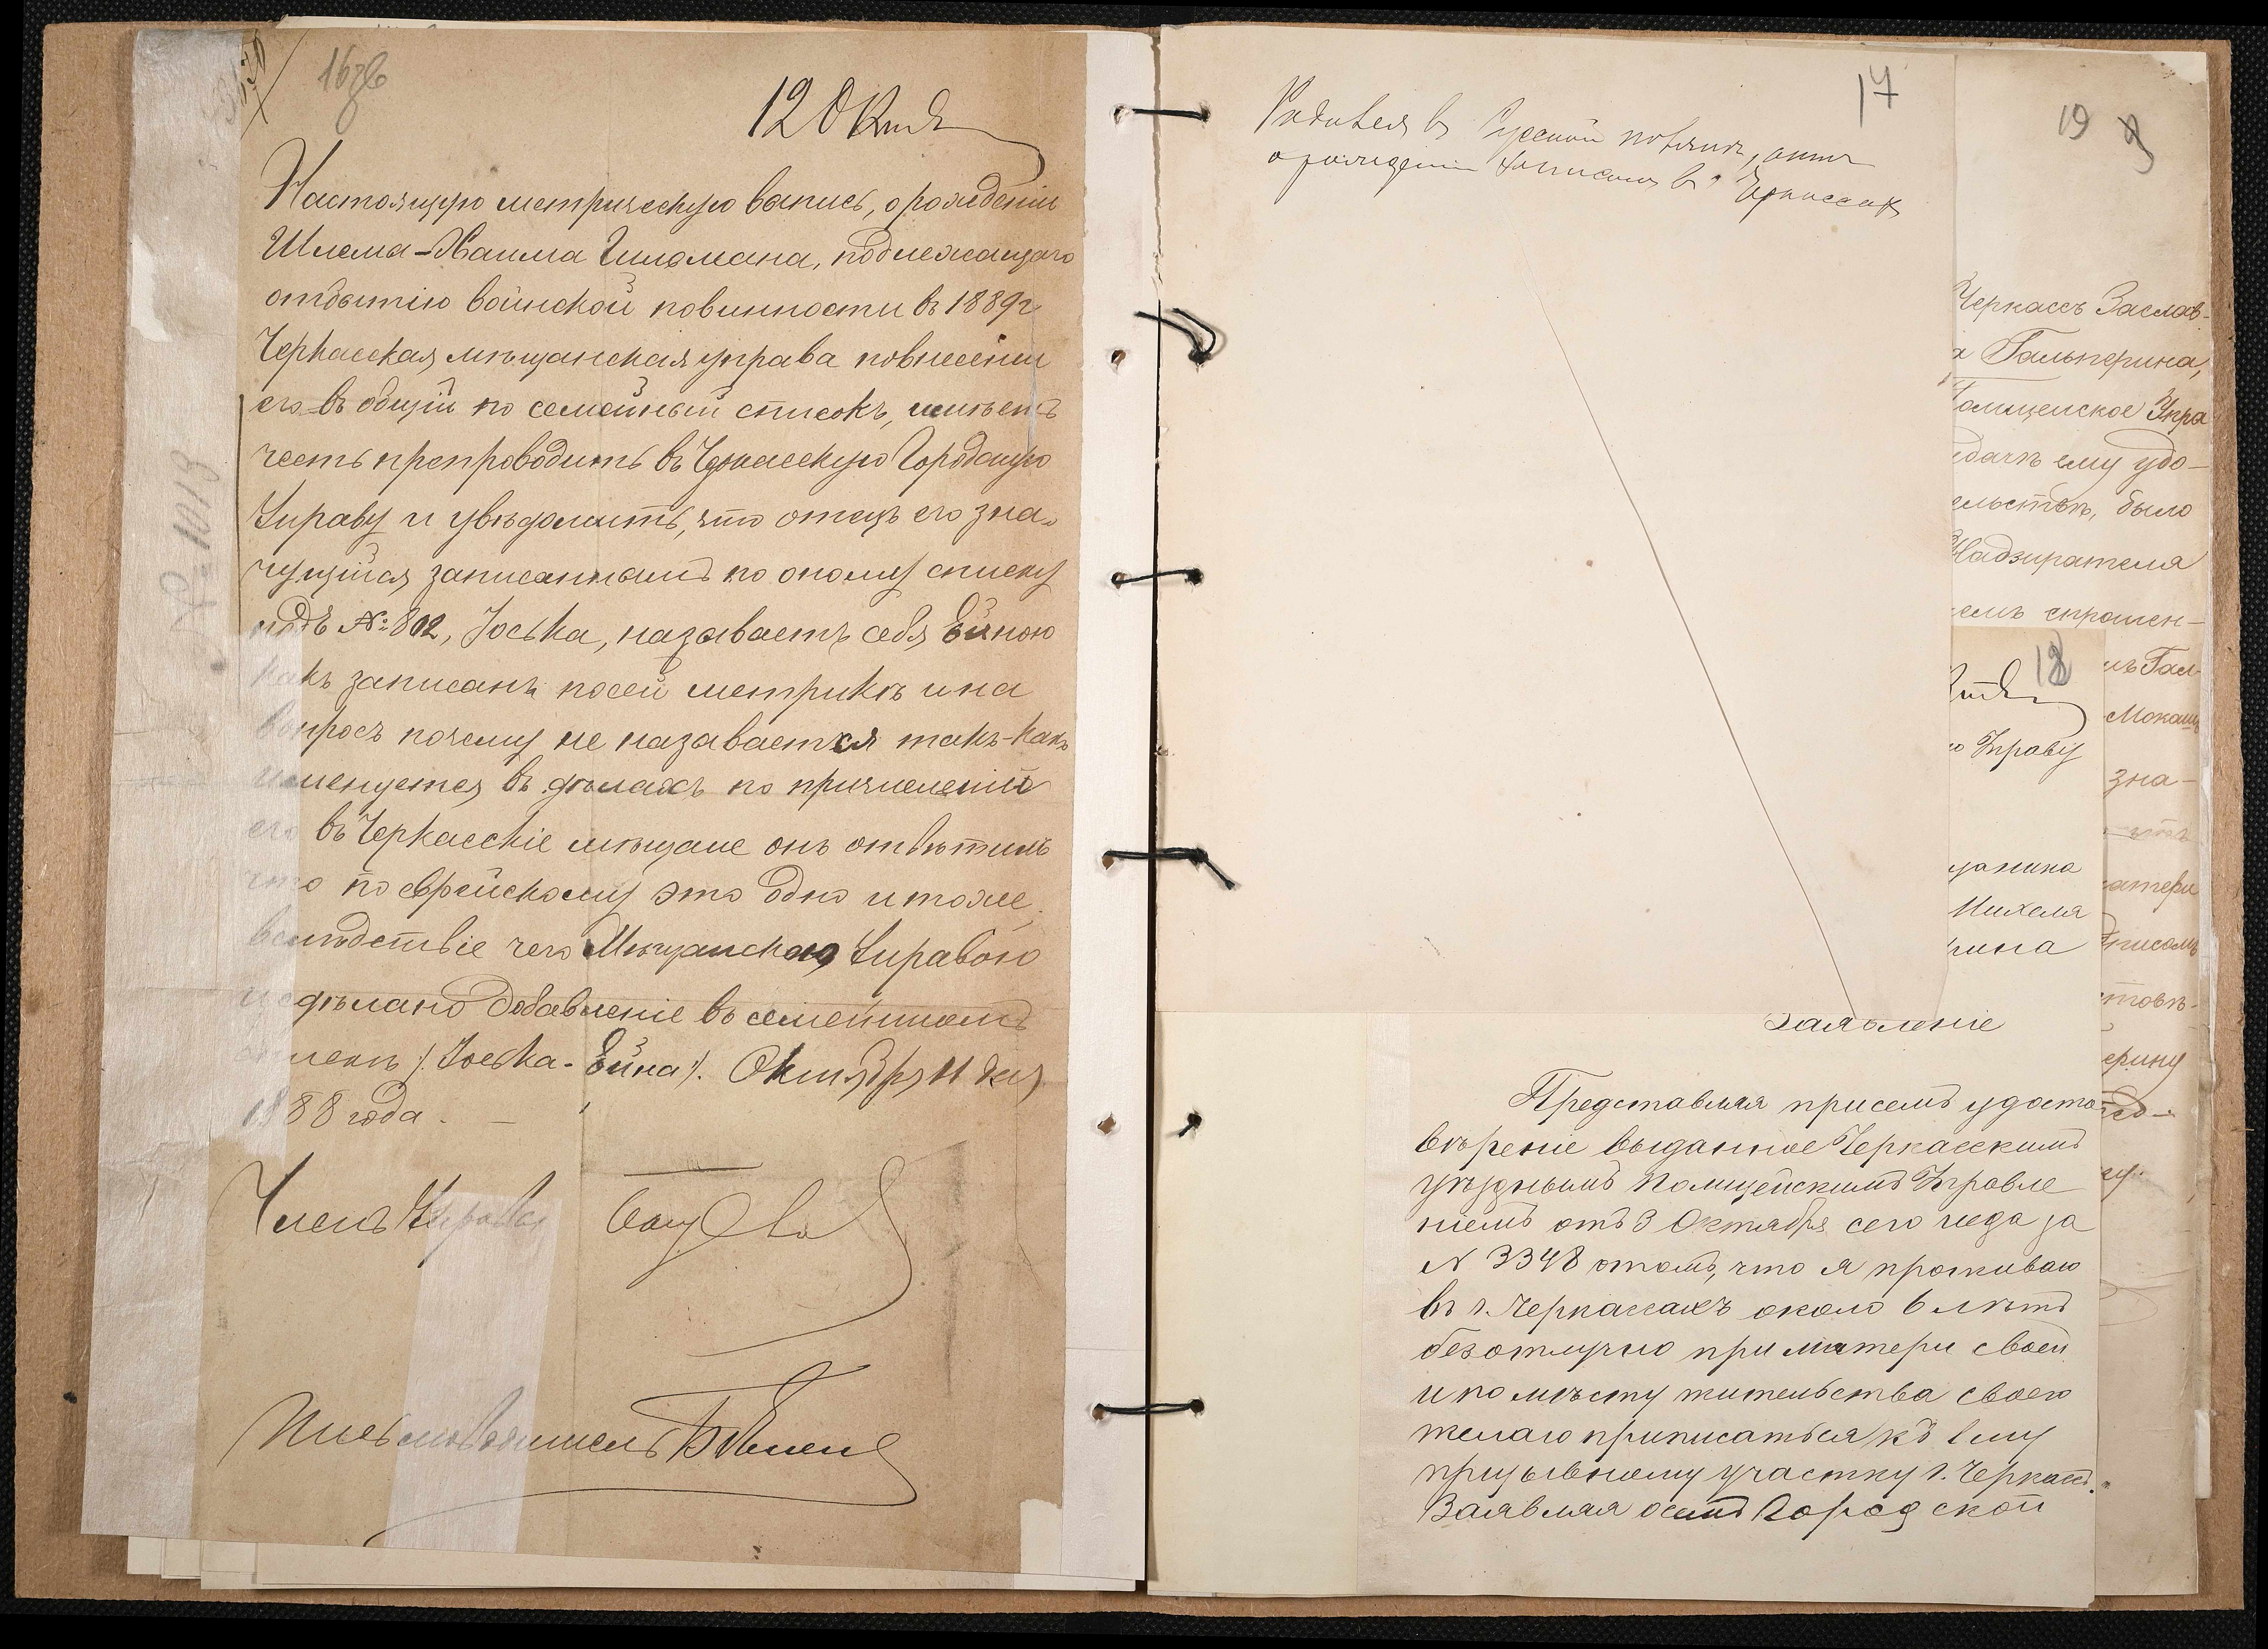 16зв
12 Окт
Настоящую метрическую выпись, о рожденіи
Шлема-Хаима, подлежащаго
отбытію воинской повинности въ 1889г
Черкасская мѣщанская управа по внесеніи
его въ общій по семейный списокъ, имѣетъ
честь препроводить въ Черкасскую Городскую
Управу и увѣдомить, что отецъ его зна-
чущійся записаннымъ по оному списку
подъ №: 802, Іоська, называетъ себя Ейною
какъ записанъ по сей метрикѣ и на
вопросъ почему не называется такъ-какъ
именуется въ дѣлахъ по причисленію
его въ Черкасскіе мѣщане онъ отвѣтилъ
что по еврейскому это одно и тоже,
вслѣдствіе чего Мѣщанскою Управою
и сдѣлано добавленіе въ семейномъ
спискѣ /: Іоська-Ейна :/. Октября 11 дня
1888 года. —
Членъ Управы
Письмоводитель
№ 1013
17
Родился въ
о рожденіи записанъ въ Черкассахъ
19
Черкассъ Заслав-
а Гальперина,
Полицейское Упра
выдачѣ ему удо-
ельствѣ, было
Надзирателя
емъ спрошен-
мъ Гал-
зна-
матери
ерину
18
ю Управу
щанина
Михеля
рина
Заявленіе
Представляя присемъ удосто-
вѣреніе выданное Черкасскимъ
уѣзднымъ Полицейскимъ Управле
ніемъ отъ 3 Октября сего года за
№ 3348 отомъ, что я проживаю
въ г. Черкассахъ около 6 лѣтъ
безотлучно при матери своей
и по мѣсту жительства своего
желаю приписаться къ 1 му
призывному участку г. Черкассъ.
Заявляя о семъ Городской